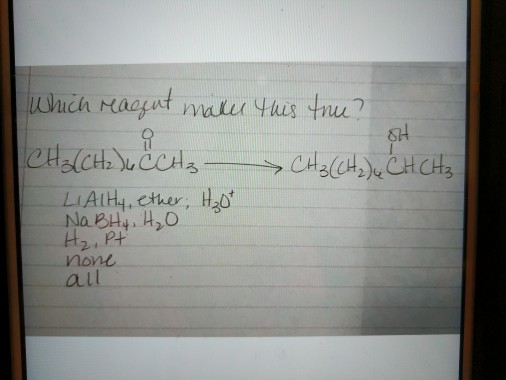 Which reagent makes this true?
O
||
CH3(CH2)4CCH3 → CH3(CH2)4CHCH3
OH
LiAlH4, ether; H3O+
NaBH4, H2O
H2, Pt
none
all